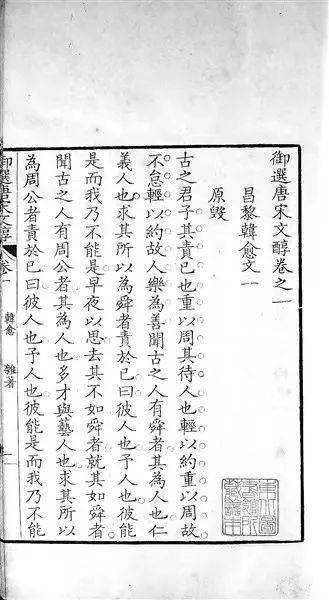 御選唐宋文醇卷之一
昌黎韓愈文一
原毀
古之君子其責已也重以周其待人也輕以約重以周故
不怠輕以約故人樂為善聞古之人有舜者其為人也仁
義人也求其所以為舜者責於已曰彼人也予人也彼能
是而我乃不能是早夜以思去其不如舜者就其如舜者
聞古之人有周公者其為人也多才與藝人也求其所以
為周公者責於已曰彼人也予人也彼能是而我乃不能
御選唐宋文醇 卷一 韓愈 雜著 一